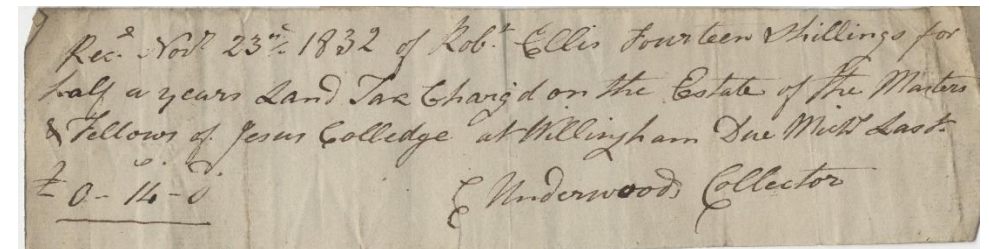 Rec.d Nov.r 23.rd 1832 of Rob.t Ellis Fourteen Shillings for
half a years Land Tax Charg'd on the Estate of the Masters
& Fellows of Jesus Colledge at Willingham Due Mich.s Last
£ 0 - 14 - 0
C Underwood Collector